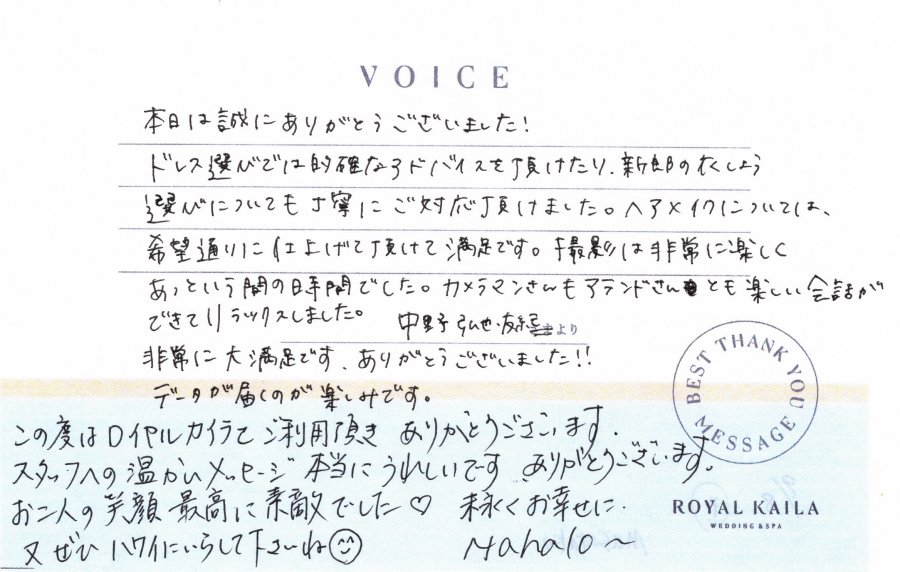 VOICE
本日は誠にありがとうございました!
ドレス選びでは的確なアドバイスを頂けたり、新郎のいしょう
選びについても丁寧にご対応頂けました。ヘアメイクについては、
希望通りに仕上げて頂けて満足です。撮影は非常に楽しく
あっという間の時間でした。カメラマンさんもアテンドさんとも楽しい会話が
できてリラックスしました。
中野 より
非常に大満足です、ありがとうございました!!
データが届くのが楽しみです。
BEST THANK YOU MESSAGE
この度はロイヤルカイラをご利用頂き ありがとうございます.
スタッフへの温かいメッセージ 本当にうれしいです ありがとうございます.
お二人の笑顔 最高に素敵でした♡ 末永くお幸せに.
又ぜひ ハワイにいらして下さいね☺ Mahalo~
ROYAL KAILA
WEDDING & SPA